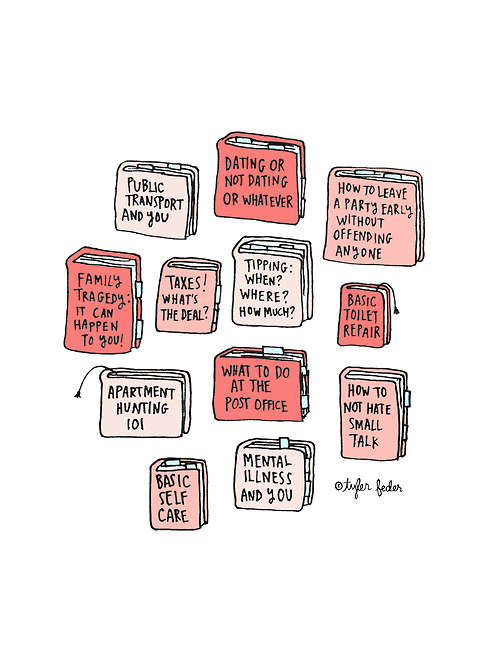 PUBLIC
TRANSPORT
AND YOU
DATING OR
NOT DATING
OR WHATEVER
HOW TO LEAVE
A PARTY EARLY
WITHOUT
OFFENDING
ANYONE
FAMILY
TRAGEDY:
IT CAN
HAPPEN
TO YOU!
TAXES!
WHAT'S
THE DEAL?
TIPPING:
WHEN?
WHERE?
HOW MUCH?
BASIC
TOILET
REPAIR
APARTMENT
HUNTING
101
WHAT TO DO
AT THE
POST OFFICE
HOW TO
NOT HATE
SMALL
TALK
BASIC
SELF
CARE
MENTAL
ILLNESS
AND YOU
©tyler feder